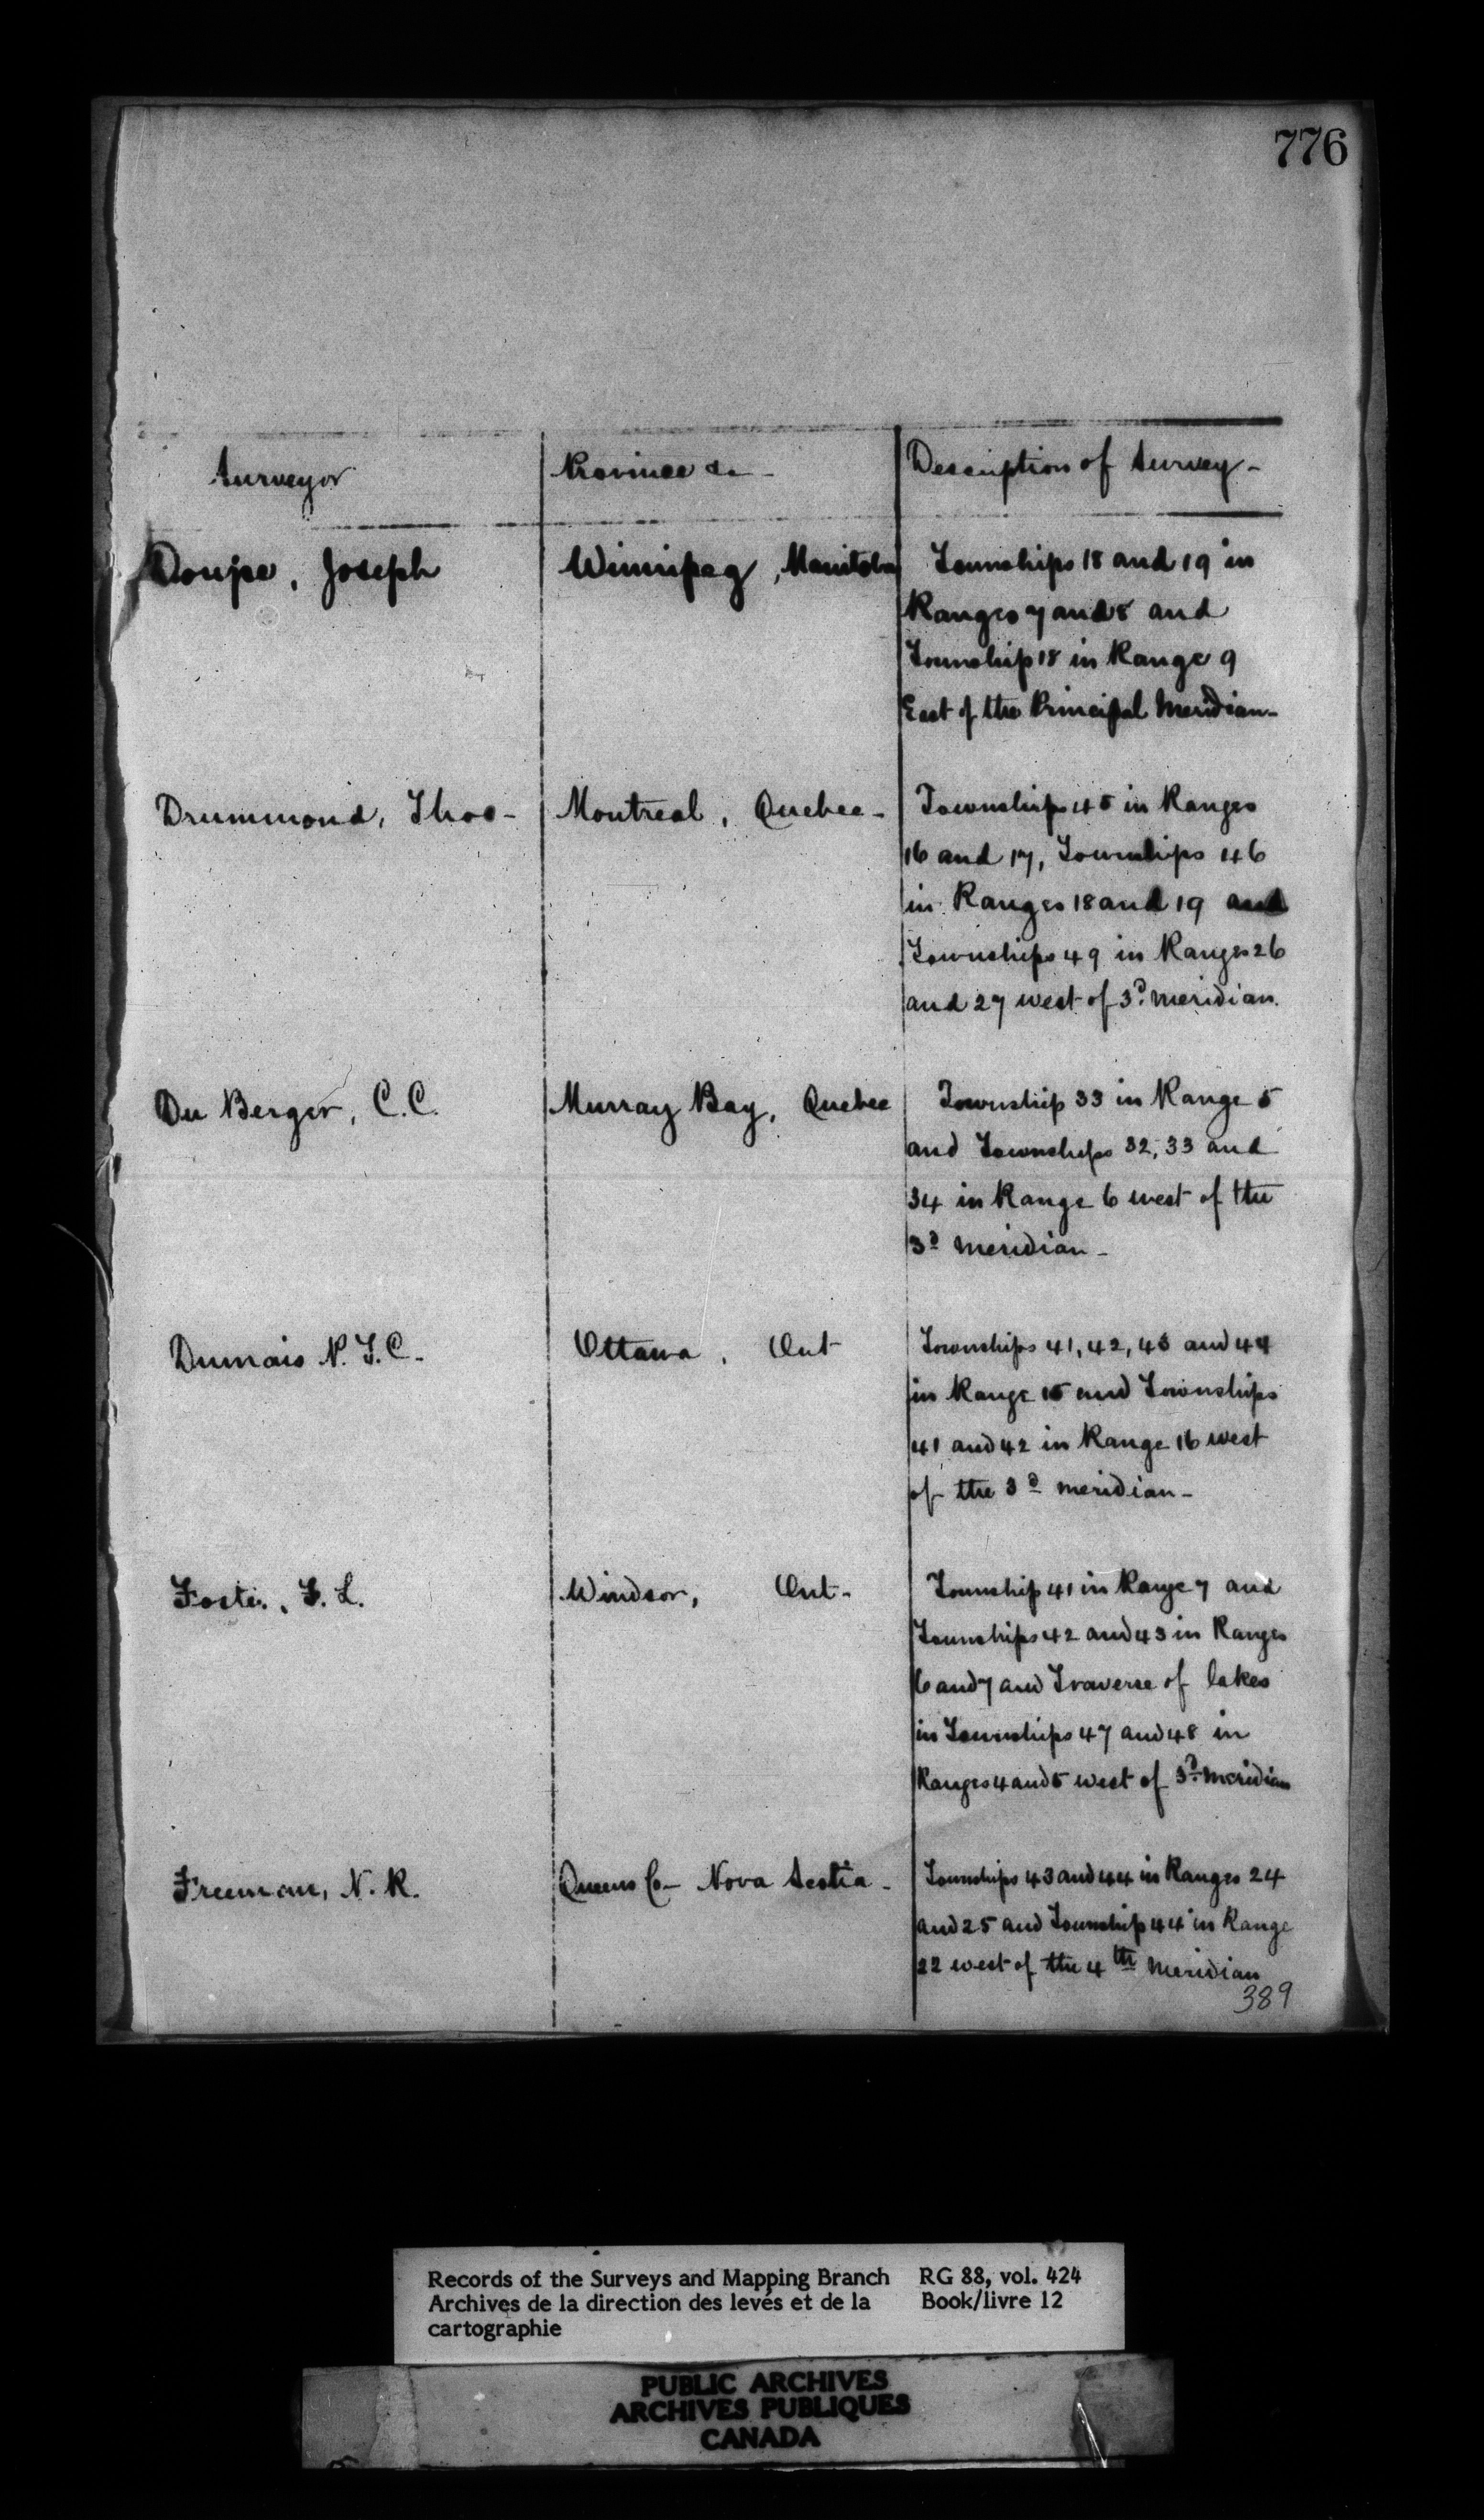 776
Surveyor Province &c - Description of Survey -
Doupe, Joseph Winnipeg, Manitoba Townships 18 and 19 in
Ranges 7 and 8 and
Township 18 in Range 9
East of the Principal Meridian -
Drummond, Thos - Montreal, Quebec - Townships 45 in Ranges
16 and 17, Townships 46
in Ranges 18 and 19 and
Townships 49 in Ranges 26
and 27 west of 3d meridian.
Du Berger, C.C. Murray Bay, Quebec Township 33 in Range 5
and Townships 32, 33 and
34 in Range 6 west of the
3d meridian -
Dumais P.T.C. - Ottawa, Ont Townships 41, 42, 43 and 44
in Range 15 and Townships
41 and 42 in Range 16 west
of the 3d meridian -
Foster, F.L. Windsor, Ont - Township 41 in Range 7 and
Townships 42 and 43 in Ranges
6 and 7 and Traverse of lakes
in Townships 47 and 48 in
Ranges 4 and 5 west of 3d meridian
Freeman, N.R. Queens Co - Nova Scotia - Townships 43 and 44 in Ranges 24
and 25 and Township 44 in Range
22 west of the 4th Meridian
389
Records of the Surveys and Mapping Branch RG 88, vol. 424
Archives de la direction des levés et de la Book/livre 12
cartographie
PUBLIC ARCHIVES
ARCHIVES PUBLIQUES
CANADA